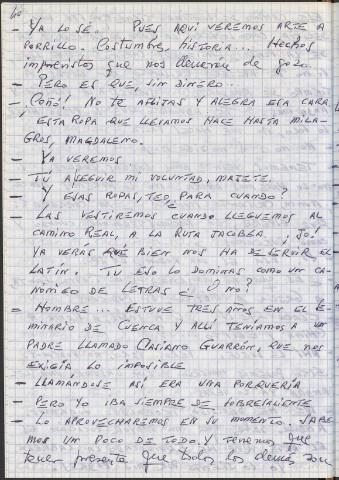 60
- YA LO SÉ. PUES AQUÍ VEREMOS ARTE A
PORRILLO. Costumbres, historia... Hechos
imprevistos que nos llenarán de gozo.
- PERO ES QUE, SIN DINERO..
- ¡COÑE! NO TE AFLIJAS Y ALEGRA ESA CARA,
ESTA ROPA QUE LLEVAMOS HACE HASTA MILA-
GROS, MAGDALENO.
- YA VEREMOS.
- TÚ A SEGUIR MI VOLUNTAD, MAJETE.
- Y ESAS ROPAS, TEO, ¿PARA CUANDO?
- LAS VESTIREMOS CUANDO LLEGUEMOS AL
CAMINO REAL, A LA RUTA JACOBEA, ¡JO!
YA VERÁS QUÉ BIEN NOS HA DE SERVIR EL
LATÍN. TÚ ESO LO DOMINAS COMO UN CA-
NÓNIGO DE LETRAS ¿O NO?
- HOMBRE... ESTUVE TRES AÑOS EN EL SE-
MINARIO DE CUENCA Y ALLÍ TENÍAMOS A UN
PADRE LLAMADO CASIANO GUARRÓN, QUE NOS
EXIGÍA LO IMPOSIBLE
- LLAMÁNDOSE ASÍ ERA UNA PORQUERÍA
- PERO YO IBA SIEMPRE DE SOBRESALIENTE
- LO APROVECHAREMOS EN SU MOMENTO. SABE-
MOS UN POCO DE TODO, Y tenemos que
tener presente que todos los demás son